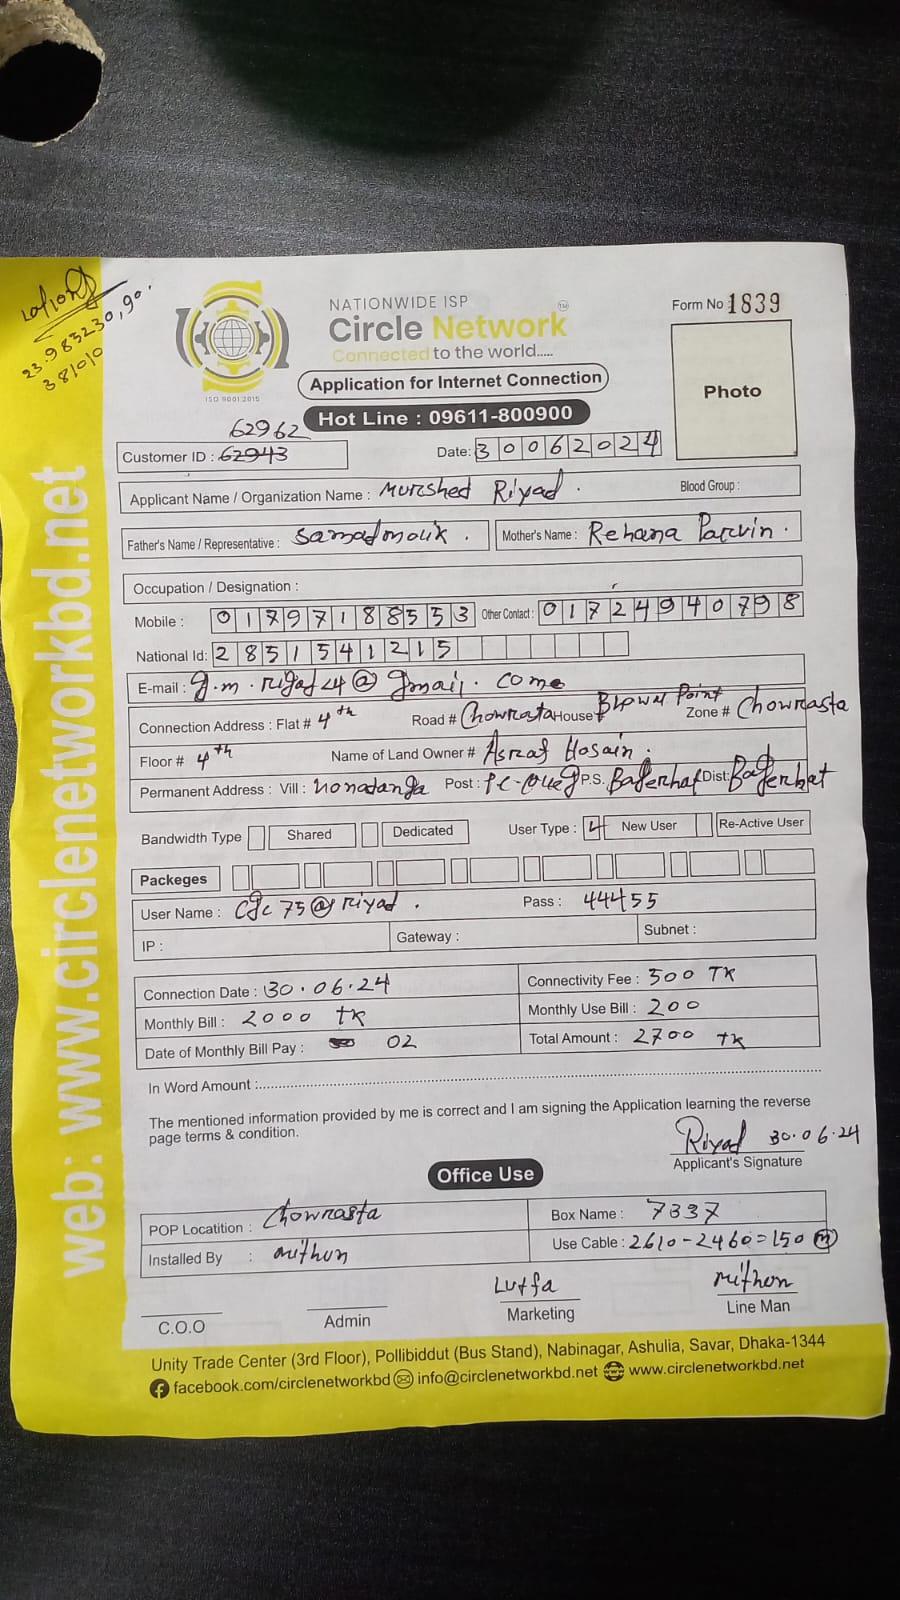 23.983230,90.
381010
NATIONWIDE ISP
Circle Network
Connected to the world.....
ISO 9001:2015
Form No 1839
Photo
Application for Internet Connection
Hot Line : 09611-800900
62962
Customer ID : 62943
Date: 30062024
Applicant Name / Organization Name : Murshed Riyad. Blood Group :
Father's Name / Representative : Samadmolik. Mother's Name : Rehana Parvin.
Occupation / Designation :
Mobile : 01797188553 Other Contact : 01724940798
National Id: 2851541215
E-mail : g.m.riyad24@gmail.come
Connection Address : Flat # 4th Road # Chowrasta House # Brown Point Zone # Chowrasta
Floor # 4th Name of Land Owner # Asraf Hosain.
Permanent Address : Vill : nonadanga Post : P.S. Bagerhat Dist: Bagerhat
Bandwidth Type Shared Dedicated User Type : New User Re-Active User
Packeges
User Name : cgc75@riyad. Pass : 44455
IP : Gateway : Subnet :
Connection Date : 30.06.24 Connectivity Fee : 500 TK
Monthly Bill : 2000 TK Monthly Use Bill : 200
Date of Monthly Bill Pay : 02 Total Amount : 2700 TK
In Word Amount :
The mentioned information provided by me is correct and I am signing the Application learning the reverse
page terms & condition.
Riyad 30.06.24
Applicant's Signature
Office Use
POP Locatition : Chowrasta Box Name : 7337
Installed By : mithun Use Cable : 2610-2460=150 m
Lutfa mithon
C.O.O Admin Marketing Line Man
Unity Trade Center (3rd Floor), Pollibiddut (Bus Stand), Nabinagar, Ashulia, Savar, Dhaka-1344
facebook.com/circlenetworkbd info@circlenetworkbd.net www.circlenetworkbd.net
web: www.circlenetworkbd.net